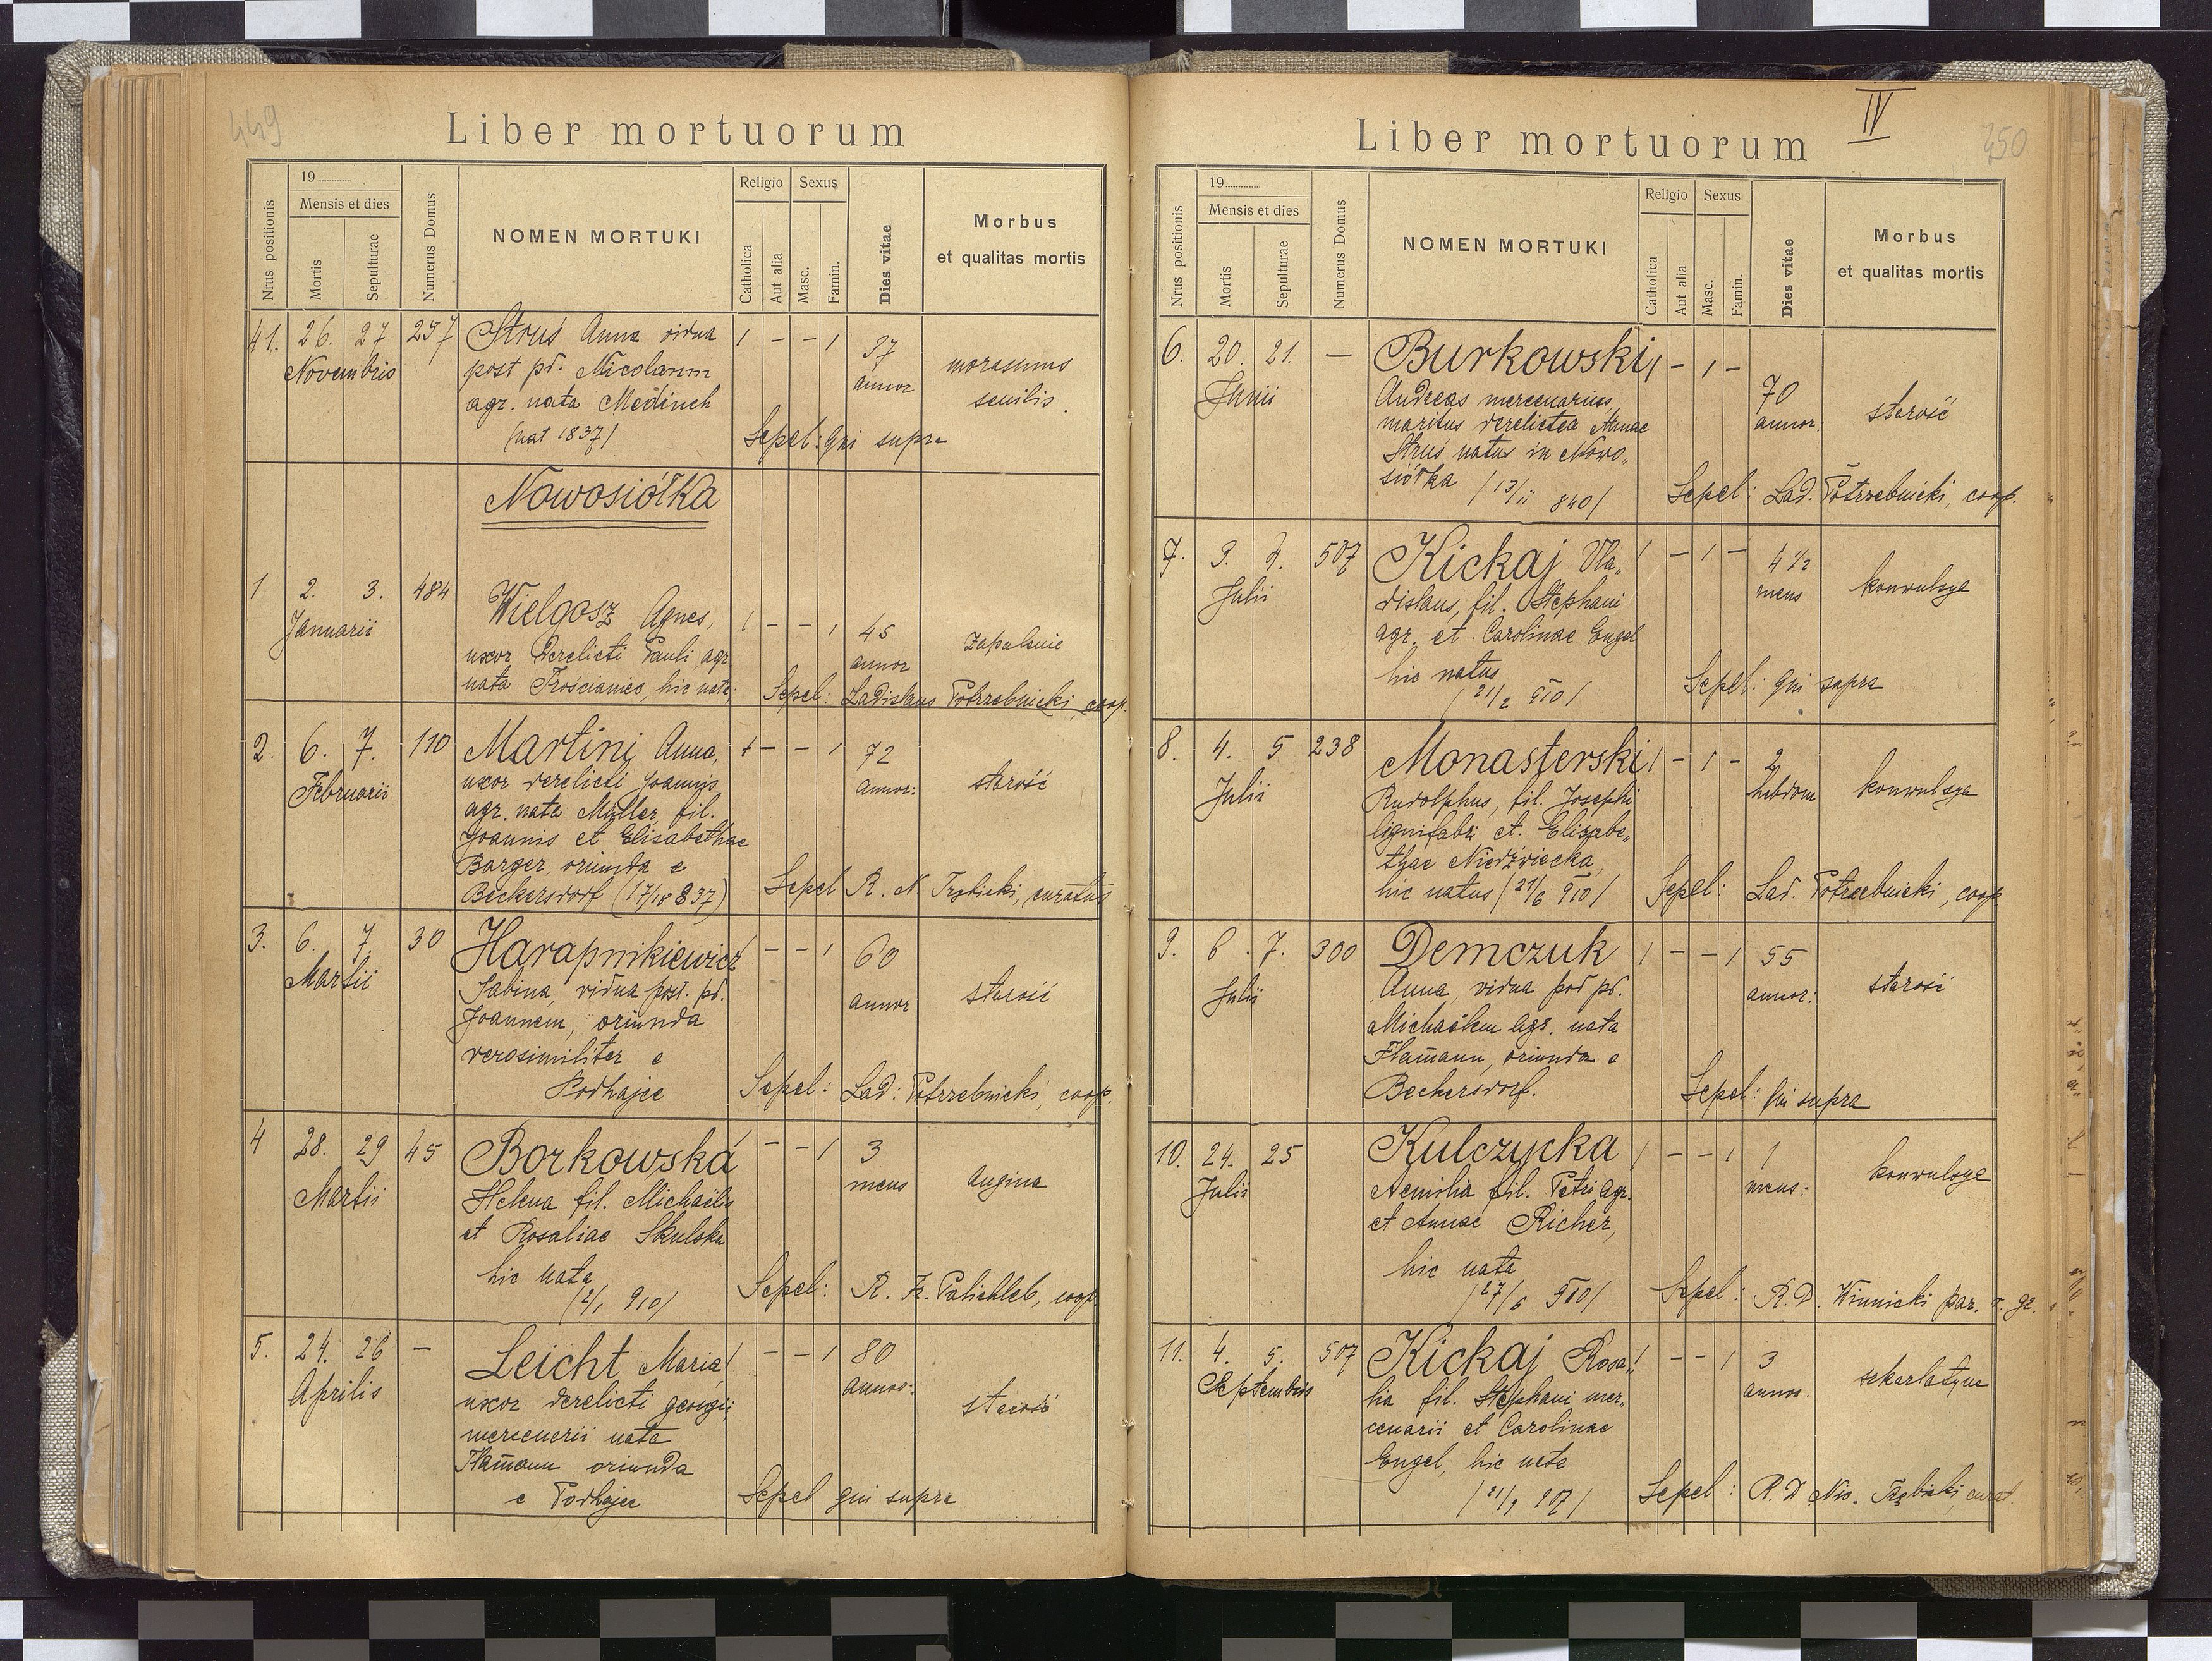 449
Liber mortuorum
Nrus positionis
19
Mensis et dies
Mortis
Sepulturae
Numerus Domus
NOMEN MORTUKI
Religio
Catholica
Aut alia
Sexus
Masc.
Famin.
Dies vitae
Morbus
et qualitas mortis
41. 26. 27 Novembris 297
Struś Anna vidua
post pd. Nicolaum
agr. nata Medinch
(nat 1837)
1 - - 1
37 annor
morasmus
senilis.
Sepel: qui supra
Nowosiółka
1 2. 3. Januarii 484
Wielgosz Agnes,
uxor derelicti Pauli agr.
nata Trościaniec, hic nata;
1 - - 1
45 annor
zapalenie
Sepel: Ladislaus Potrzebnicki, coop.
2. 6. 7. Februarii 110
Martini Anna,
uxor derelicti Joannis
agr. nata Müller, fil.
Joannis et Elisabethae
Barger, oriunda e
Beckersdorf (17/18 837)
1 - - 1
72 annor:
starość
Sepel R. N Trzbicki, curatus
3. 6. 7. Martii 30
Harapnikiewicz
Sabina, vidua post. pd.
Joannem, oriunda
verosimiliter e
Podhajce
1 - - 1
60 annor
starość
Sepel: Lad: Potrzebnicki, coop.
4 28. 29 Martii 45
Borkowska
Helena fil. Michaelis
et Rosaliae Skulska
hic nata
(2/1 910)
1 - - 1
3 mens
angina
Sepel: R. Fr. Palichleb, coop.
5. 24. 26 Aprilis -
Leicht Maria
uxor derelicti georgii
mercenerii nata
Flamann oriunda
e Podhajce
1 - - 1
80 annor:
starość
Sepel qui supra
IV
450
Liber mortuorum
Nrus positionis
19
Mensis et dies
Mortis
Sepulturae
Numerus Domus
NOMEN MORTUKI
Religio
Catholica
Aut alia
Sexus
Masc.
Famin.
Dies vitae
Morbus
et qualitas mortis
6. 20. 21. Junii -
Burkowski
Andreas mercenarius,
maritus derelictea Annae
Struś natus in Nowo„
siółka (13/11 840)
1 - 1 -
70 annor:
starość
Sepel: Lad. Potrzebnicki, coop.
7. 3. 4. Julii 507
Kickaj Vla„
dislaus, fil. Stephani
agr. et. Carolinae Engel
hic natus
(21/2 910)
1 - 1 -
4 1/2 mens
konwulsye
Sepel: qui supra
8. 4. 5 Julii 238
Monasterski
Rudolphus, fil. Josephi
lignifabri et. Elisabe„
thae Niedźwiecka,
hic natus (21/6 910)
1 - 1 -
2 hebdom
konwulsye
Sepel: Lad. Potrzebnicki, coop
9. 6. 7. Julii 300
Demczuk
Anna, vidua pod pd.
Michaelem agr. nata
Flamann, oriunda e
Beckersdorf.
1 - - 1
55 annor:
starość
Sepel: qui supra
10. 24. 25 Julii
Kulczycka
Aemilia fil. Petri agr.
et Annae Richer,
hic nata
(27/6 910)
1 - - 1
1 mens:
konwulsye
Sepel: R. D. Winnicki par. r. gr.
11. 4. 5. Septembris 507
Kickaj Rosa„
lia fil. Stephani mer„
cenarii et Carolinae
Engel, hic nata
(21/9 907)
1 - - 1
3 annor.
szkarlatyna
Sepel: R. D Nic. Trzbicki, curat.